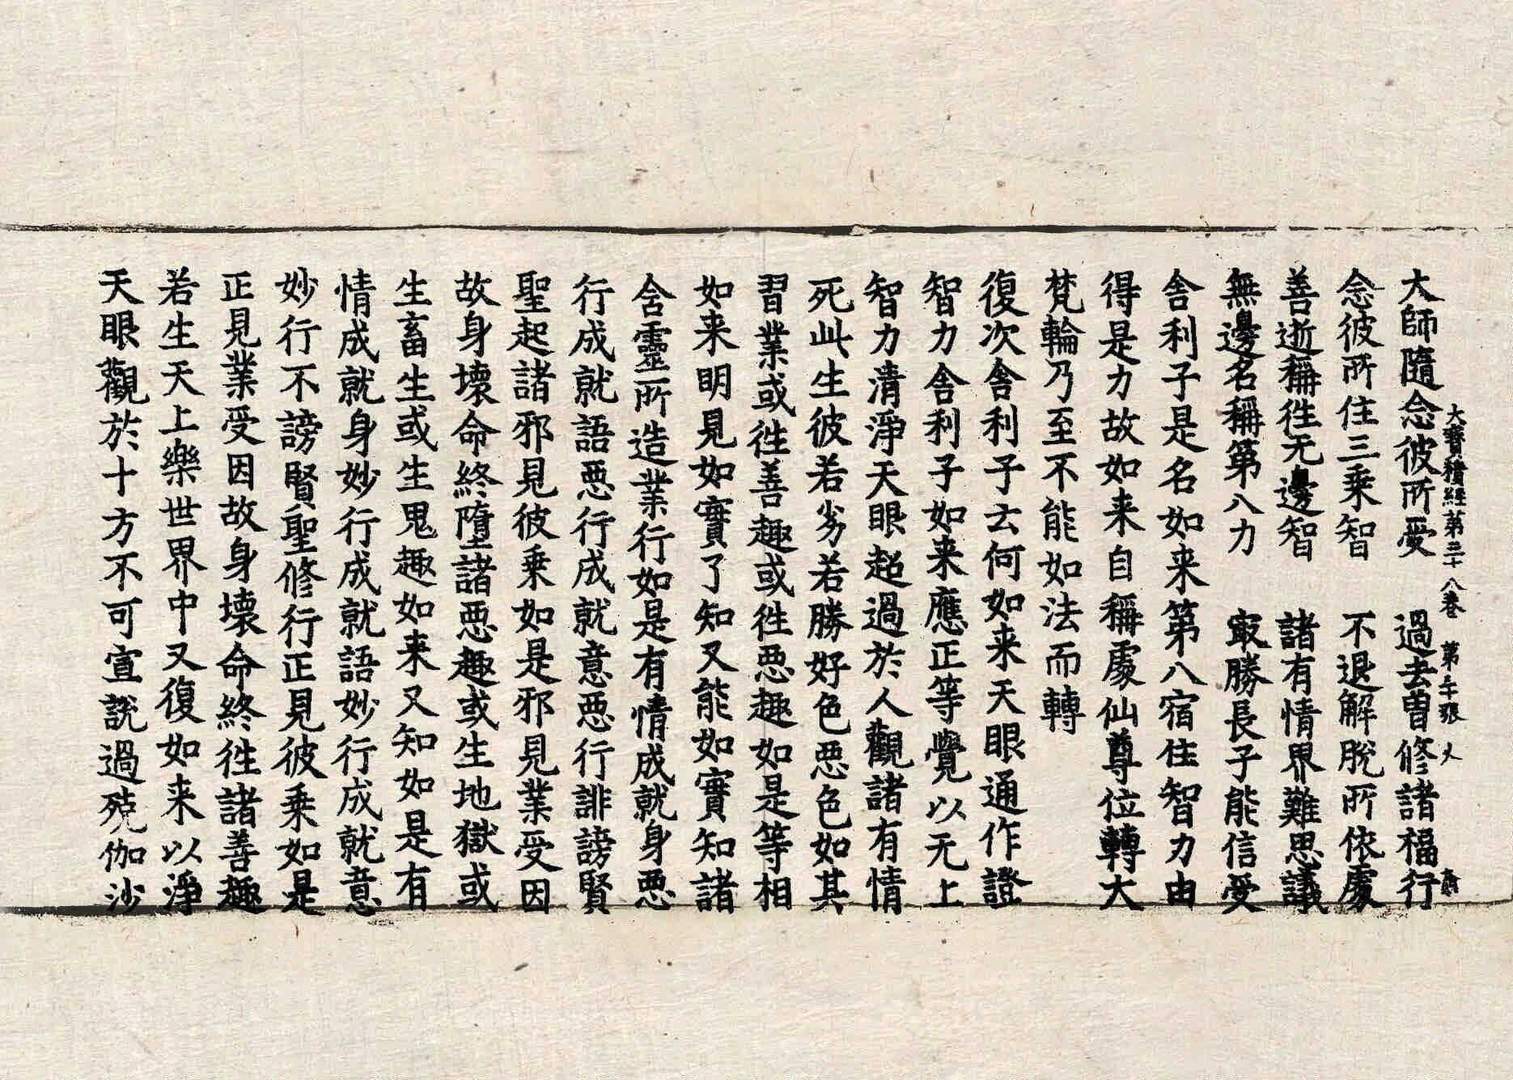 大寶積經第三十八卷　第二十張　火
大師隨念彼所受　過去曽修諸福行
念彼所住三乘智　不退解脫所依處
善逝稱往无邊智　諸有情界難思議
無邊名稱第八力　㝡勝長子能信受
舍利子是名如来第八宿住智力由
得是力故如来自稱處仙尊位轉大
梵輪乃至不能如法而轉
復次舍利子云何如来天眼通作證
智力舍利子如来應正等覺以无上
智力清淨天眼超過於人觀諸有情
死此生彼若劣若勝好色惡色如其
習業或往善趣或往惡趣如是等相
如来明見如實了知又能如實知諸
含靈所造業行如是有情成就身惡
行成就語惡行成就意惡行誹謗賢
聖起諸邪見彼乘如是邪見業受因
故身壞命終墮諸惡趣或生地獄或
生畜生或生鬼趣如来又知如是有
情成就身妙行成就語妙行成就意
妙行不謗賢聖修行正見彼乘如是
正見業受因故身壞命終往諸善趣
若生天上樂世界中又復如来以淨
天眼觀於十方不可宣說過殑伽沙